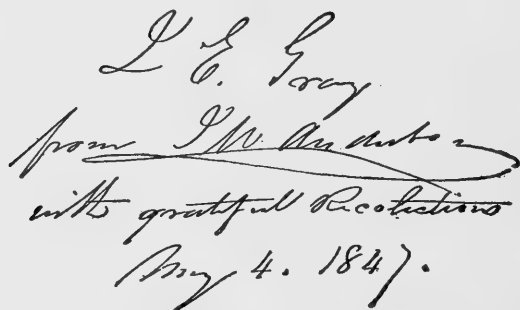 J E. Gray
from J W. Audubon
with grateful Recolections
May 4. 1847.